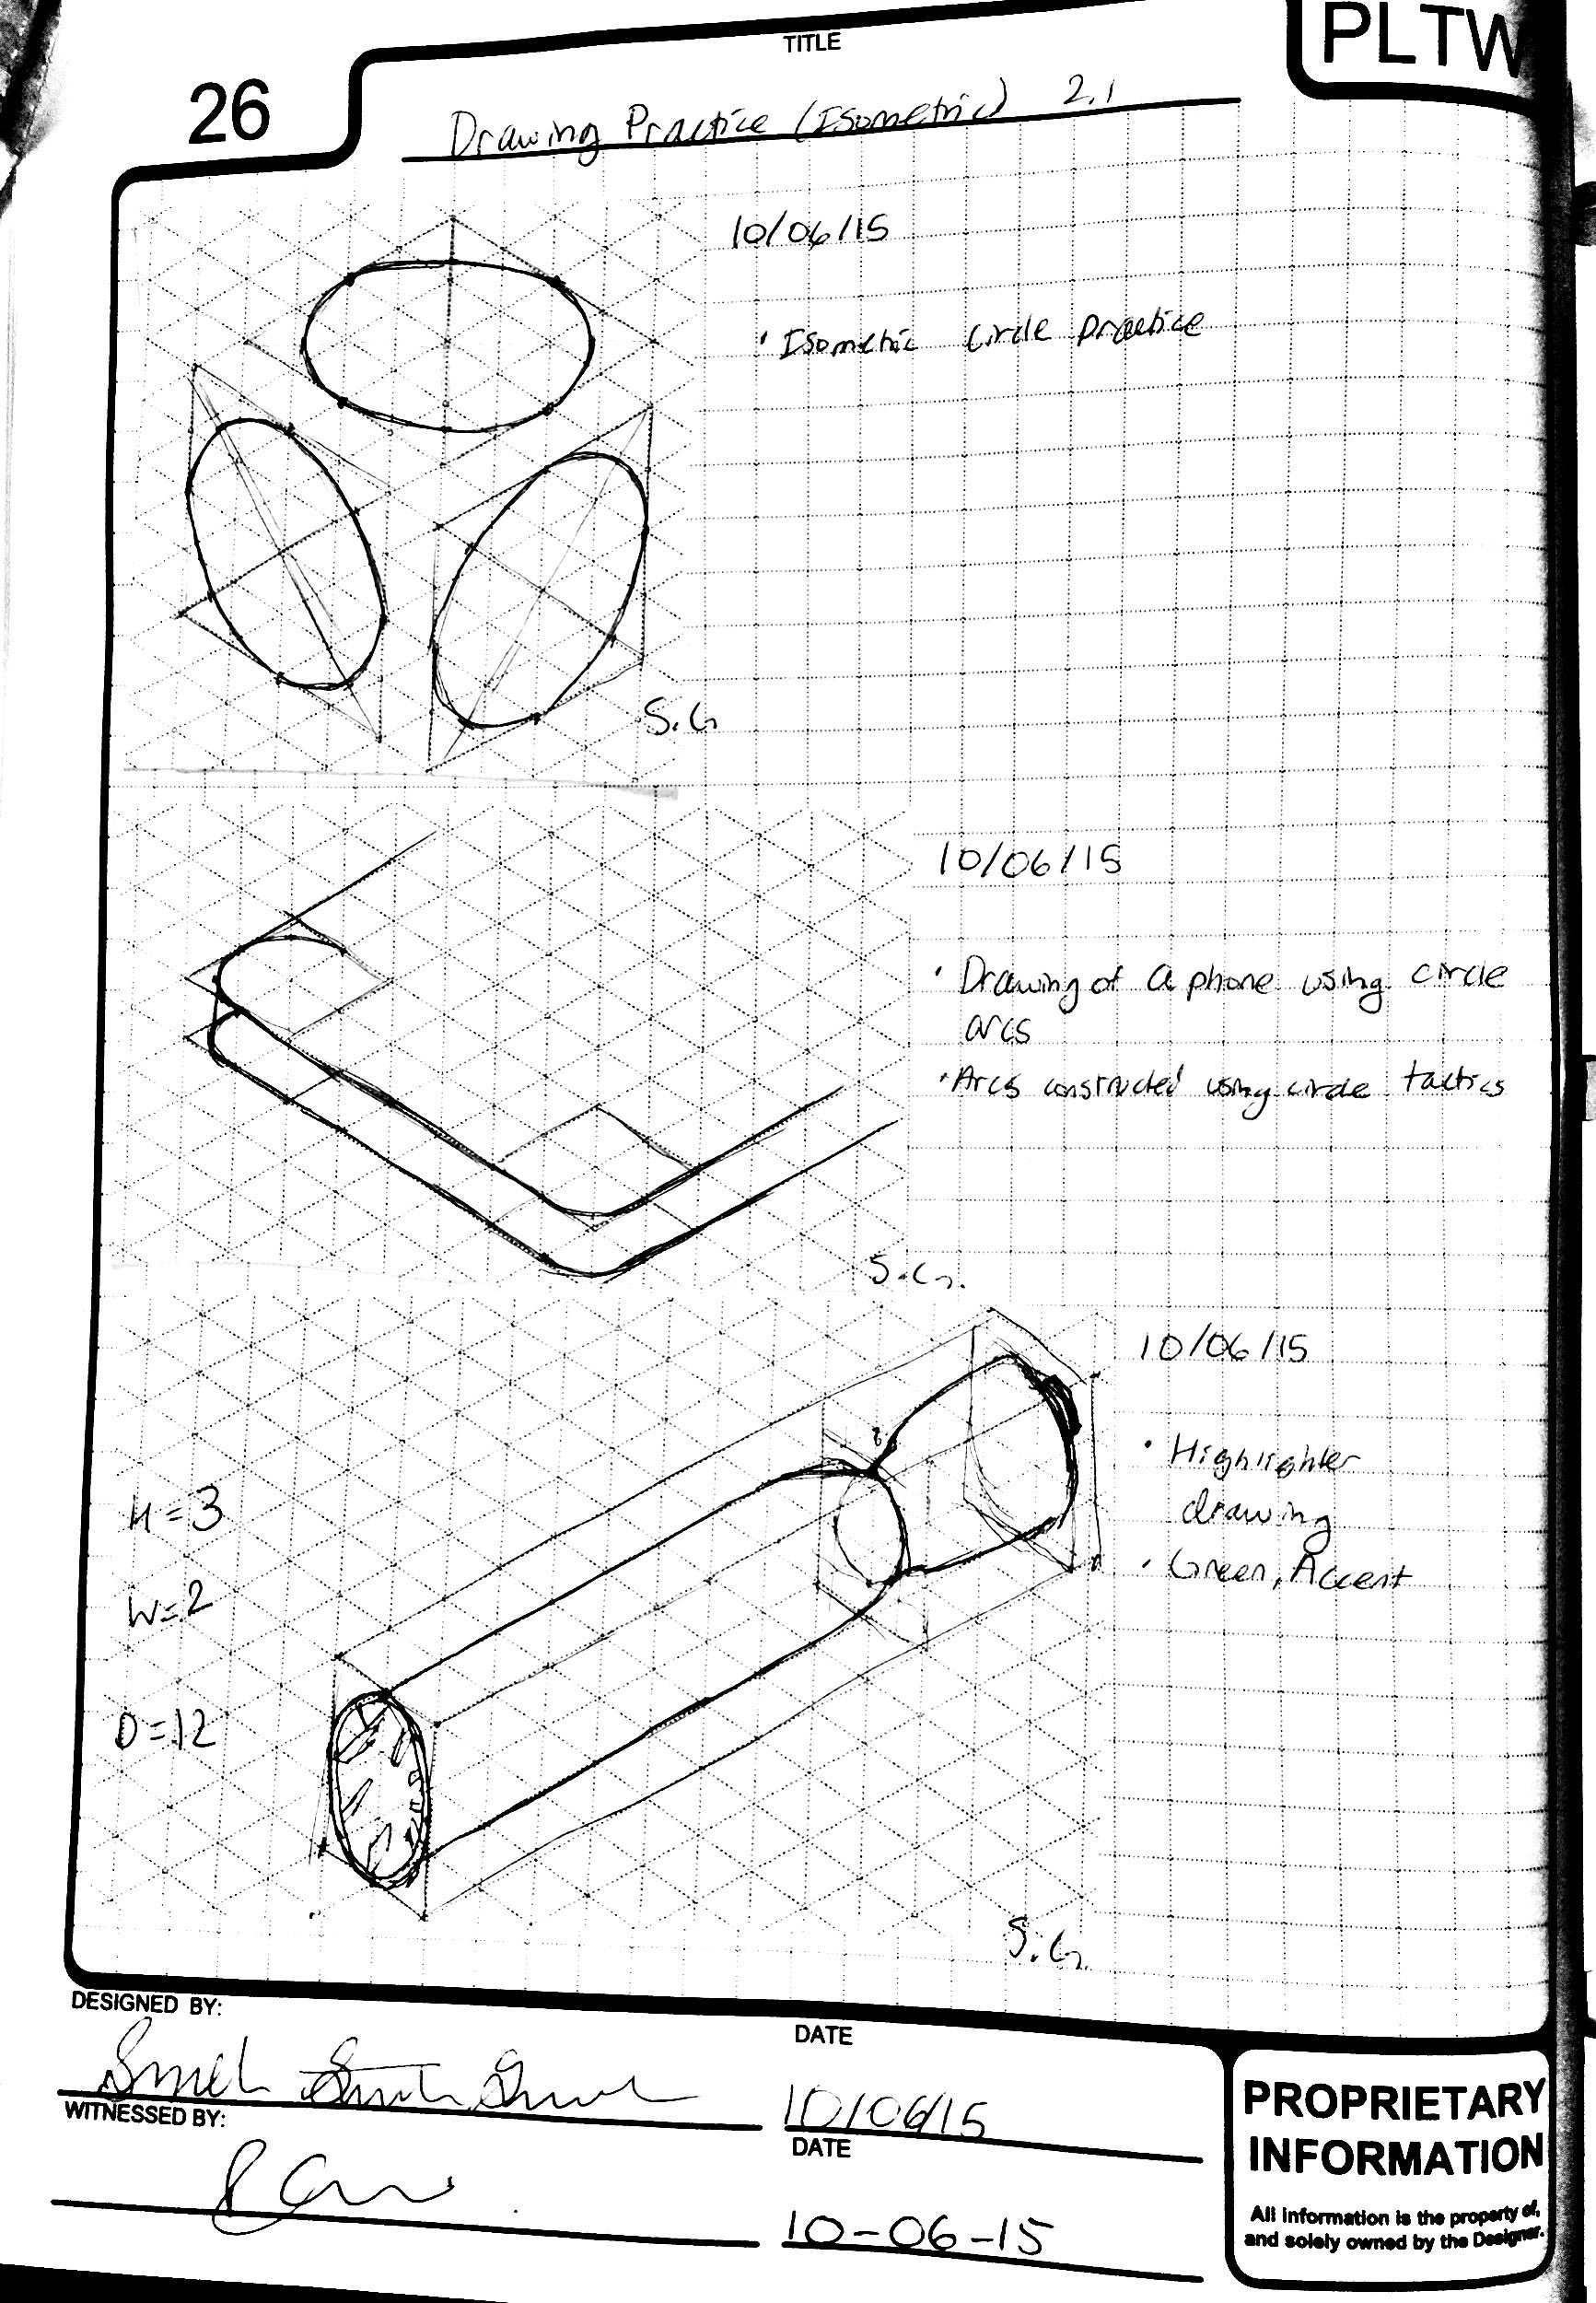 TITLE
PLTW
26
Drawing Practice (Isometric) 2.1
10/06/15
· Isometric Circle Practice
S.G
10/06/15
· Drawing of a phone using circle
arcs
· Arcs constructed using circle tactics
S.G.
10/06/15
· Highlighter
drawing
· Green, Accent
H=3
W=2
D=12
S.G.
DESIGNED BY:
DATE
10/06/15
WITNESSED BY:
DATE
10-06-15
PROPRIETARY
INFORMATION
All information is the property of,
and solely owned by the Designer.